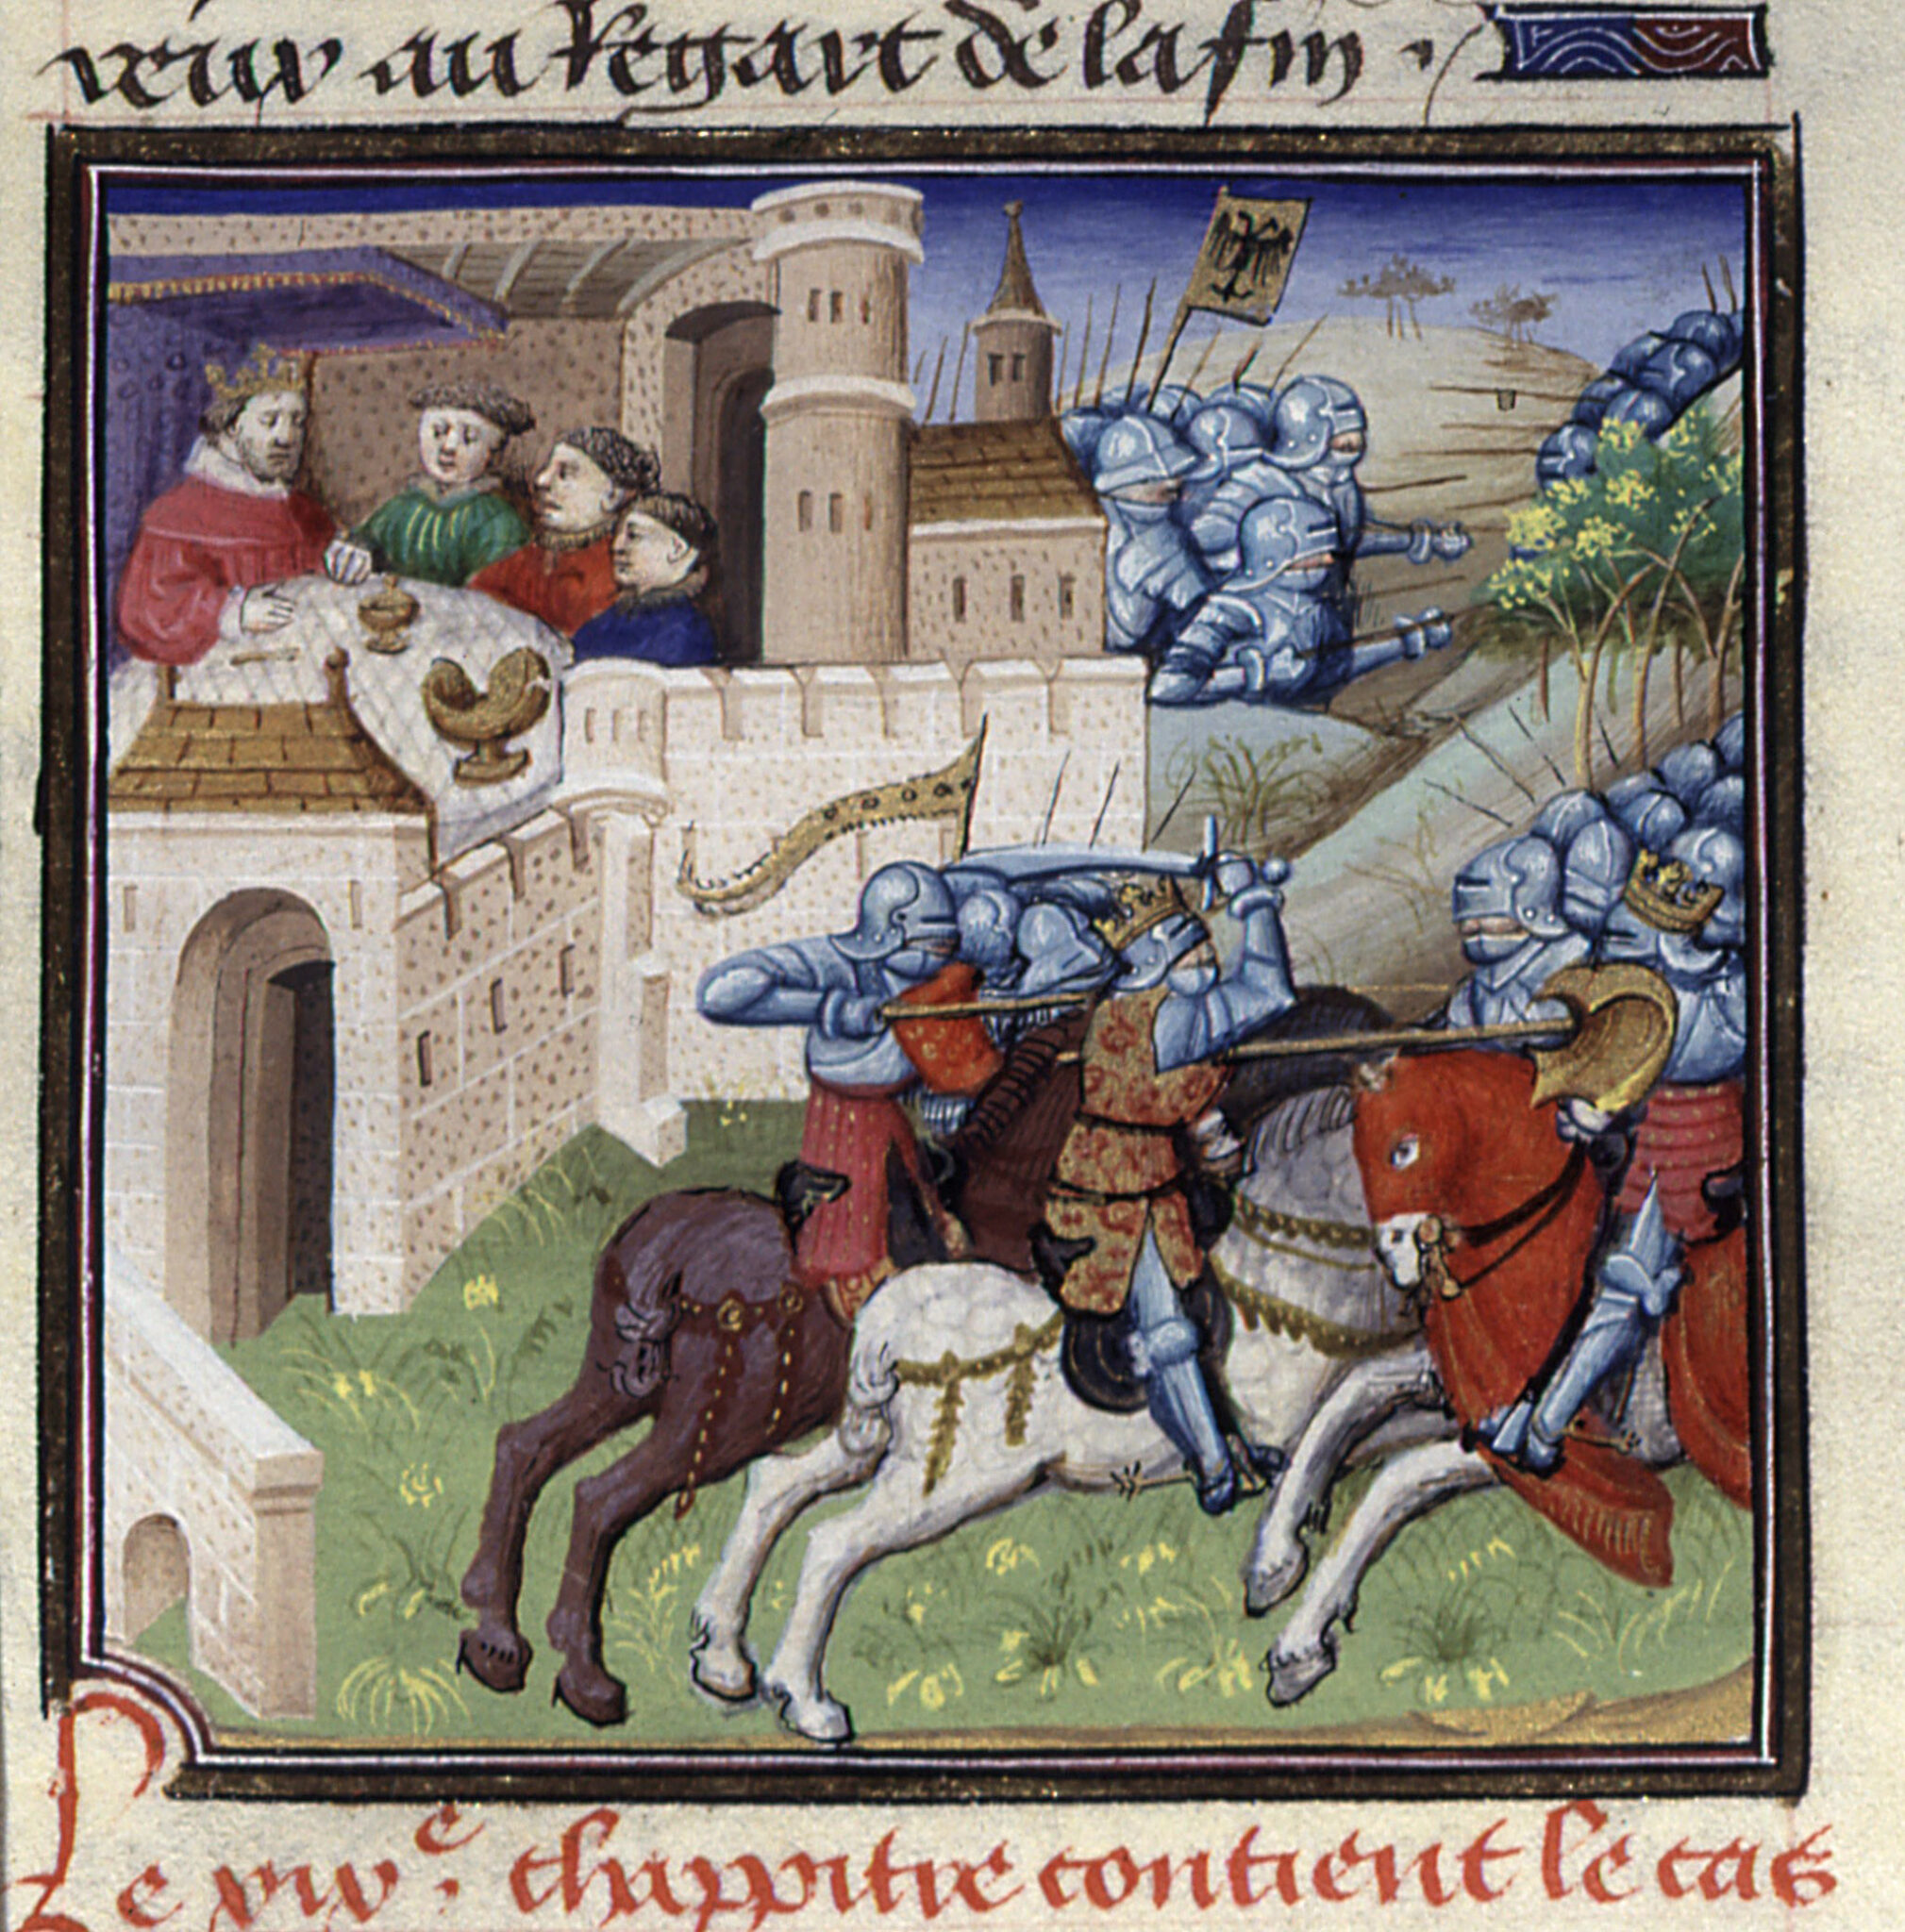 au Regart de la fin .
Le chappitre contient le cas